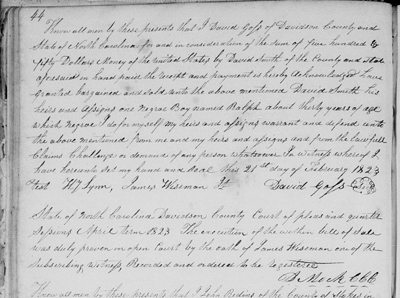 44
Know all men by these presents that I David Goss of Davidson County and
State of North Carolina for and in consideration of the sum of five hundred &
fifty Dollars Money of the United States by David Smith of the County and state
aforesaid in hand paid the receipt and payment is hereby acknowledged have
granted bargained and sold unto the above mentioned David Smith his
heirs and assigns one Negroe Boy named Ralph about thirty years of age
which Negroe I do for myself my heirs and assigns warrant and defend unto
the above mentioned from me and my heirs and assigns and from the lawfull
Claims Challenge or demand of any person whatsoever In witness whereof I
have hereunto set my hand and seal this 21st day of February 1823
Test James Wiseman David Goss
State of North Carolina Davidson County Court of pleas and quarter
Sessions April Term 1823 The execution of the within bill of sale
was duly proven in open Court by the oath of James Wiseman one of the
subscribing witness, Recorded and ordered to be registered
D Mock CCC
Know all men by these presents that I John of the County of Stokes in